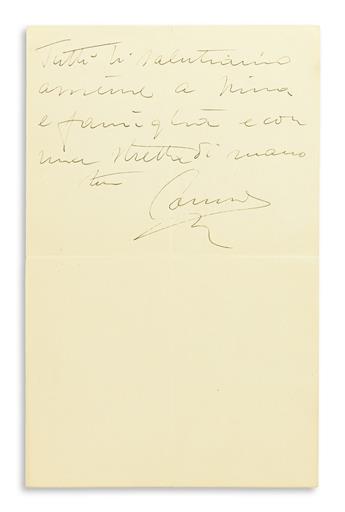 Tutti ti salutiamo
assieme a Nina
e famiglia e con
una stretta di mano
tuo